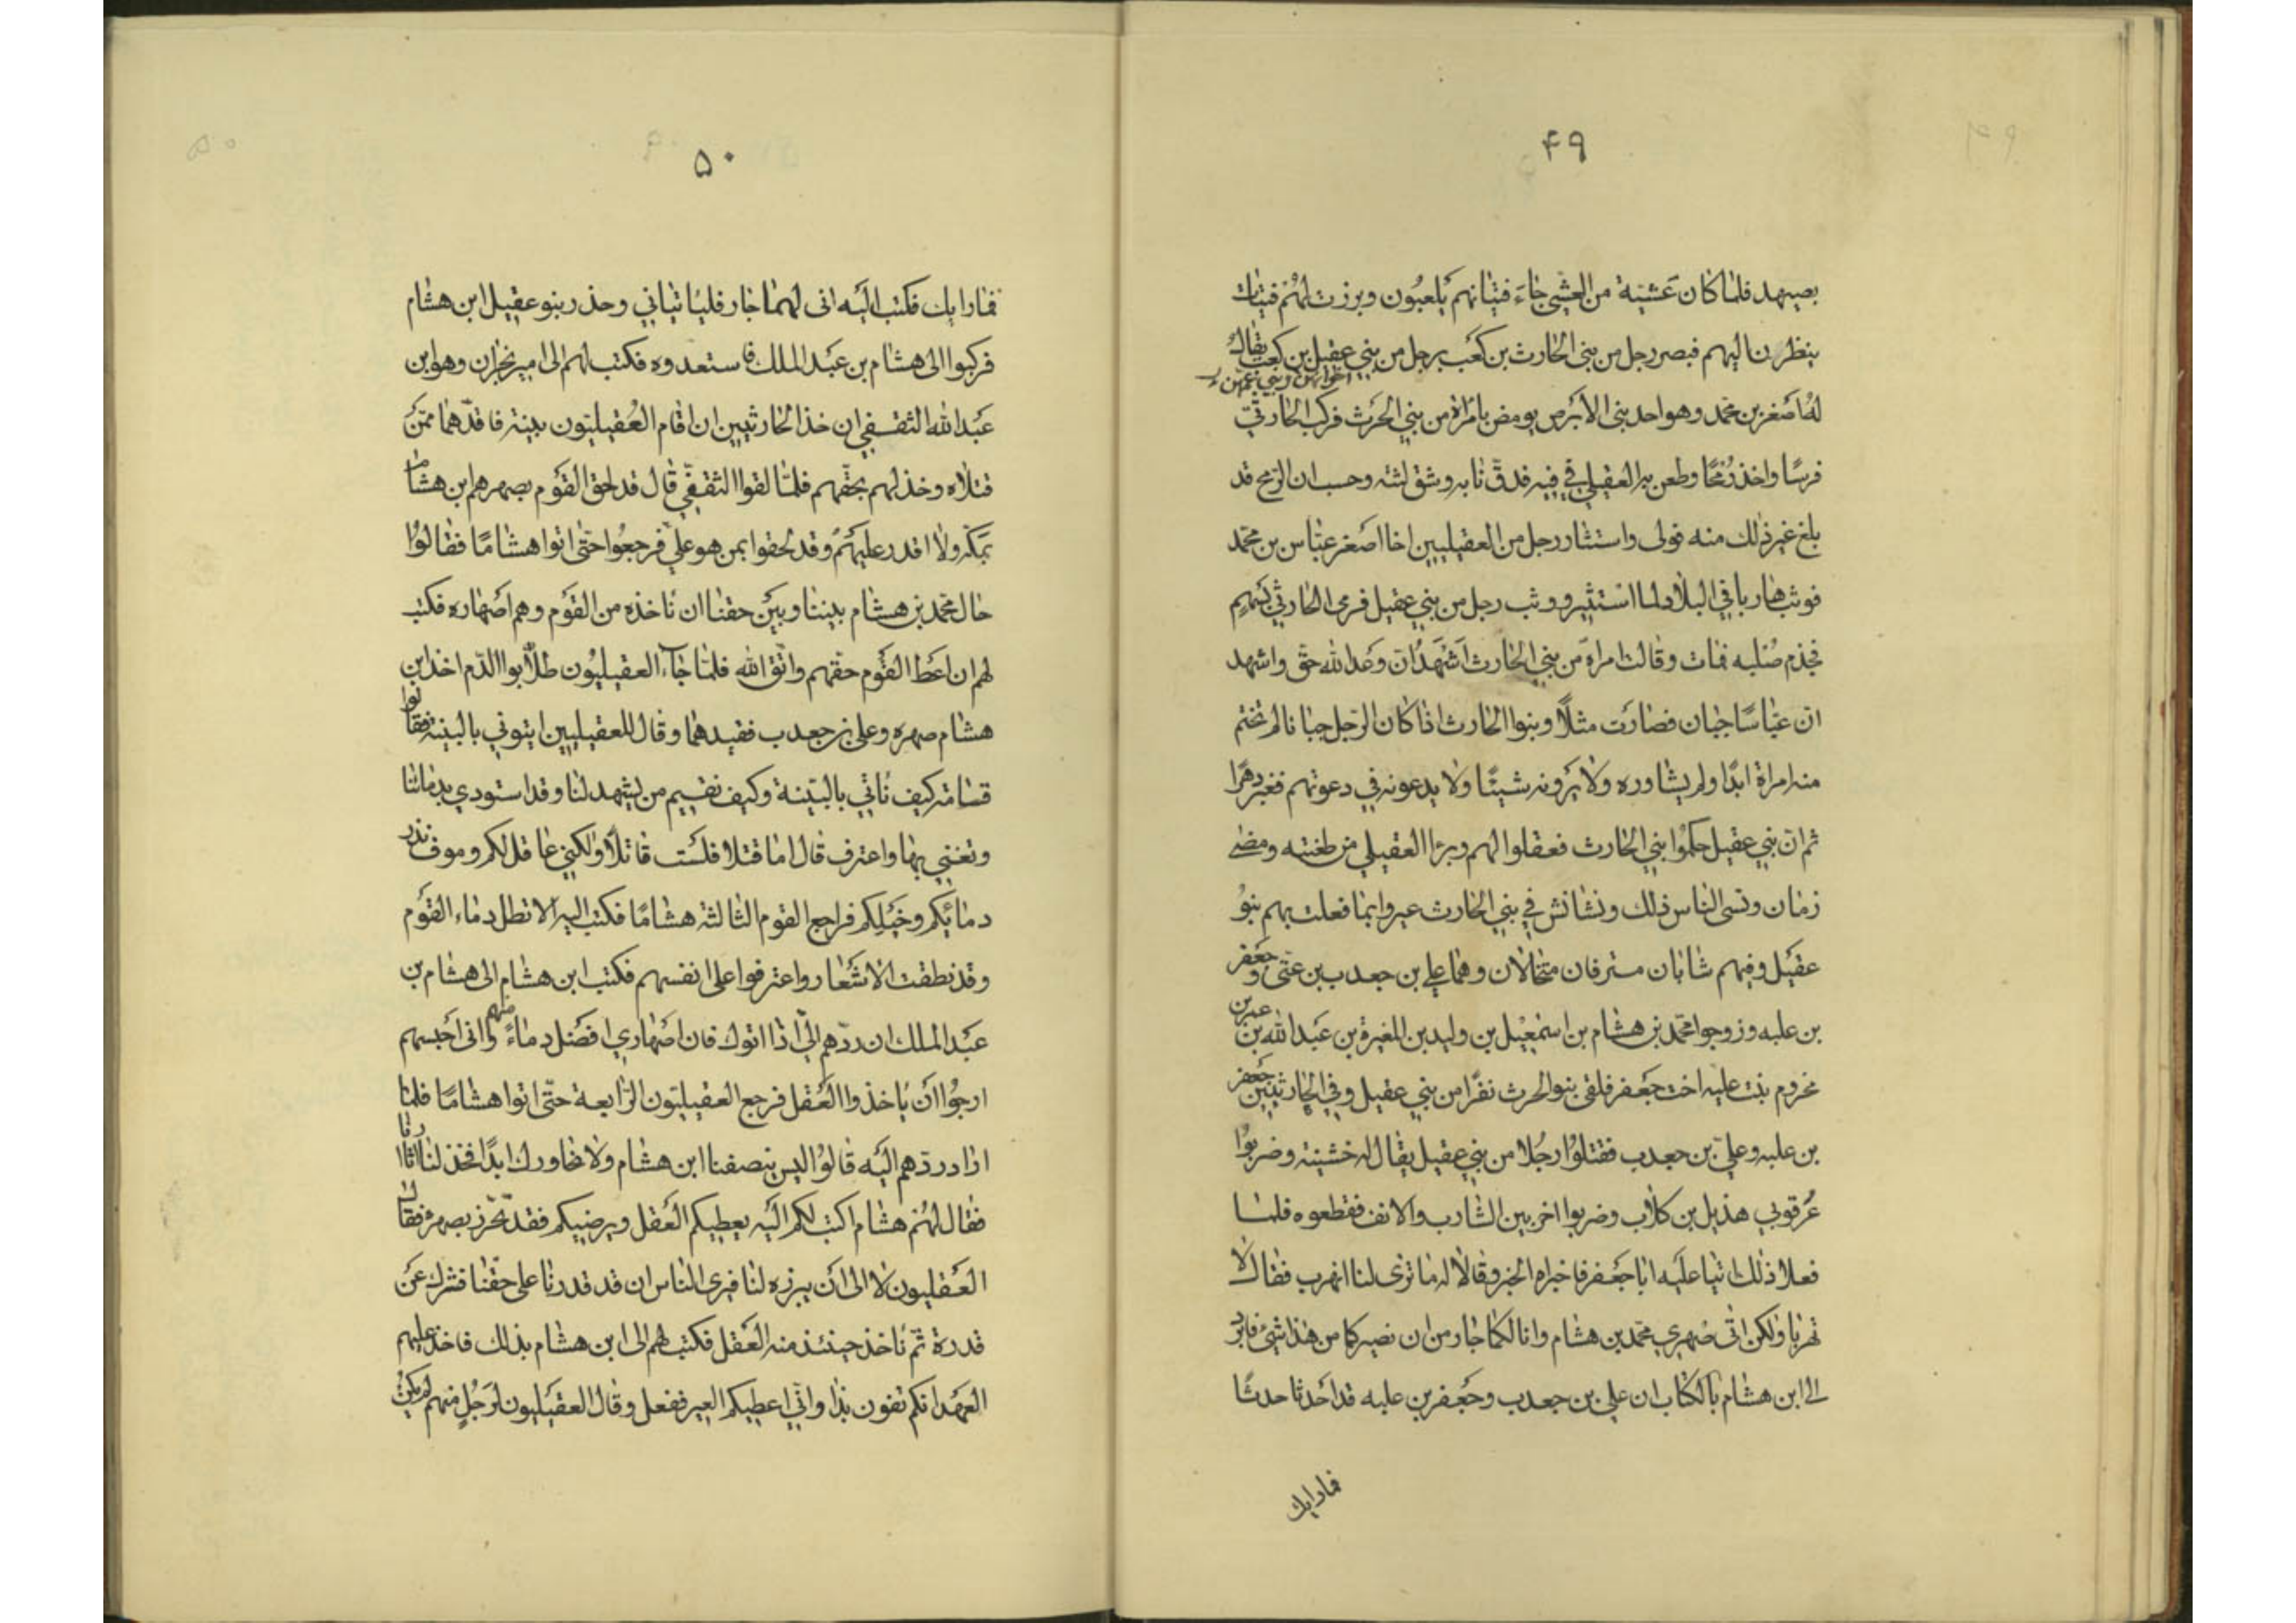 ۴۹
بصيهد فلما كان عشية من العشي جاء فتيانهم يلعبون وبرزت لهم فتيات
ينظرن اليهم فبصر رجل من بني الحارث بن كعب برجل من بني عقيل بن كعب يقال
له اصغر بن محمد وهو احد بني الابرص يومض بامراة من بني الحرث فركب الحارثي
فرسًا واخذ رمحًا وطعن به العقيلي في فيه فدق نابه وشق لثته وحسب ان الرمح قد
بلغ غير ذلك منه فولى واستثار رجل من العقيليين اخا اصغر عباس بن محمد
فوثب هاربا في البلاد لما استثير ووثب رجل من بني عقيل فرمى الحارثي بسهم
فجذم صلبه فمات وقالت امراة من بني الحارث اشهد ان وعد الله حق واشهد
ان عباسًا جبان فصارت مثلًا وبنوا الحارث اذا كان الرجل جبانا لم تختم
منه امراة ابدًا ولم يشاوره ولا يرونه شيئًا ولا يدعونه في دعوتهم فغبر دهرًا
ثم ان بني عقيل حكموا بني الحارث فعقلوا لهم وبرا العقيلي من طعنته ومضى
زمان ونسى الناس ذلك ونشا نش في بني الحارث عيروا بما فعلت بهم بنو
عقيل وفيهم شابان مسترفان متخالان وهما علي بن جعدب بن عتى وجعفر
بن علبه وزوجوا محمد بن هشام بن اسمعيل بن وليد بن المغيرة بن عبد الله بن عمر بن
مخروم بنت علبه اخت جعفر فلقى بنو الحرث نفرًا من بني عقيل وفي الحارثيين جعفر
بن علبه وعلي بن جعدب فقتلوا رجلا من بني عقيل يقال له خشينه وضربوا
عرقوبي هذيل بن كلاب وضربوا اخر بين الشارب والانف فقطعوه فلما
فعلا ذلك اتيا علبه ابا جعفر فاخبراه الخبر وقالا له ما ترى لنا انهرب فقال لا
تهربا ولكن اتى صهري محمد بن هشام وانا لكما جار من ان نصيركما من هذا شئ فابرد
الى ابن هشام بالكتاب ان علي بن جعدب وجعفر بن علبه قد احدثا حدثًا
فماراىك
۵۰
فماراىك فكتب اليه انى لهما جار فلياتياني وحذر بنو عقيل ابن هشام
فركبوا الى هشام بن عبد الملك فاستعدوه فكتب لهم الى امير نجران وهو ابن
عبد الله الثقفي ان خذ الحارثيين ان اقام العقيليون بينة فاقدهما ممن
قتلاه وخذ لهم بحقهم فلما لقوا الثقفي قال قد لحق القوم بصهرهم بن هشام
بمكه ولا اقدر عليهم وقد لحقوا بمن هو علي فرجعوا حتى اتوا هشامًا فقالوا
حال محمد بن هشام بيننا وبين حقنا ان ناخذه من القوم وهم اصهاره فكتب
لهم ان اعط القوم حقهم واتق الله فلما جاء العقيليون طلابوا الدم اخذ ابن
هشام صهره وعلي بن جعدب فقيدهما وقال للعقيليين ايتوني بالبينه فقالوا
قسامه كيف ناتي بالبينة وكيف نقيم من يشهد لنا وقد استودي بدمائنا
وتغنى بها واعترف قال اما قتلا فلست قاتلًا ولكني عاقل لكم وموف نذر
دمائكم وخبلكم فراجع القوم الثالثة هشامًا فكتب اليه لا تطل دماء القوم
وقد نطقت الاشعار واعترفوا على انفسهم فكتب ابن هشام الى هشام بن
عبد الملك ان ردهم الي اذا اتوك فان اصهاري افضل دماءً منهم وانى احبسهم
ارجوا ان ياخذوا العقل فرجع العقيليون الرابعة حتى اتوا هشامًا فلما
اراد ردهم اليه قالوا ليس ينصفنا ابن هشام ولا نجاورك ابدًا فخذ لنا
فقال لهم هشام اكتب لكم اليه يعطيكم العقل ويرضيكم فقد تحرز بصهره فقال
العقليون لا الى ان يبرزه لنا فيرى الناس ان قد قدرنا على حقنا فنترك عن
قدرة ثم ناخذ حينئذ منه العقل فكتب لهم الى ابن هشام بذلك فاخذ عليهم
العهد انكم تفون بذا واني اعطيكم العير ففعل وقال العقيليون لرجل منهم لم يكن